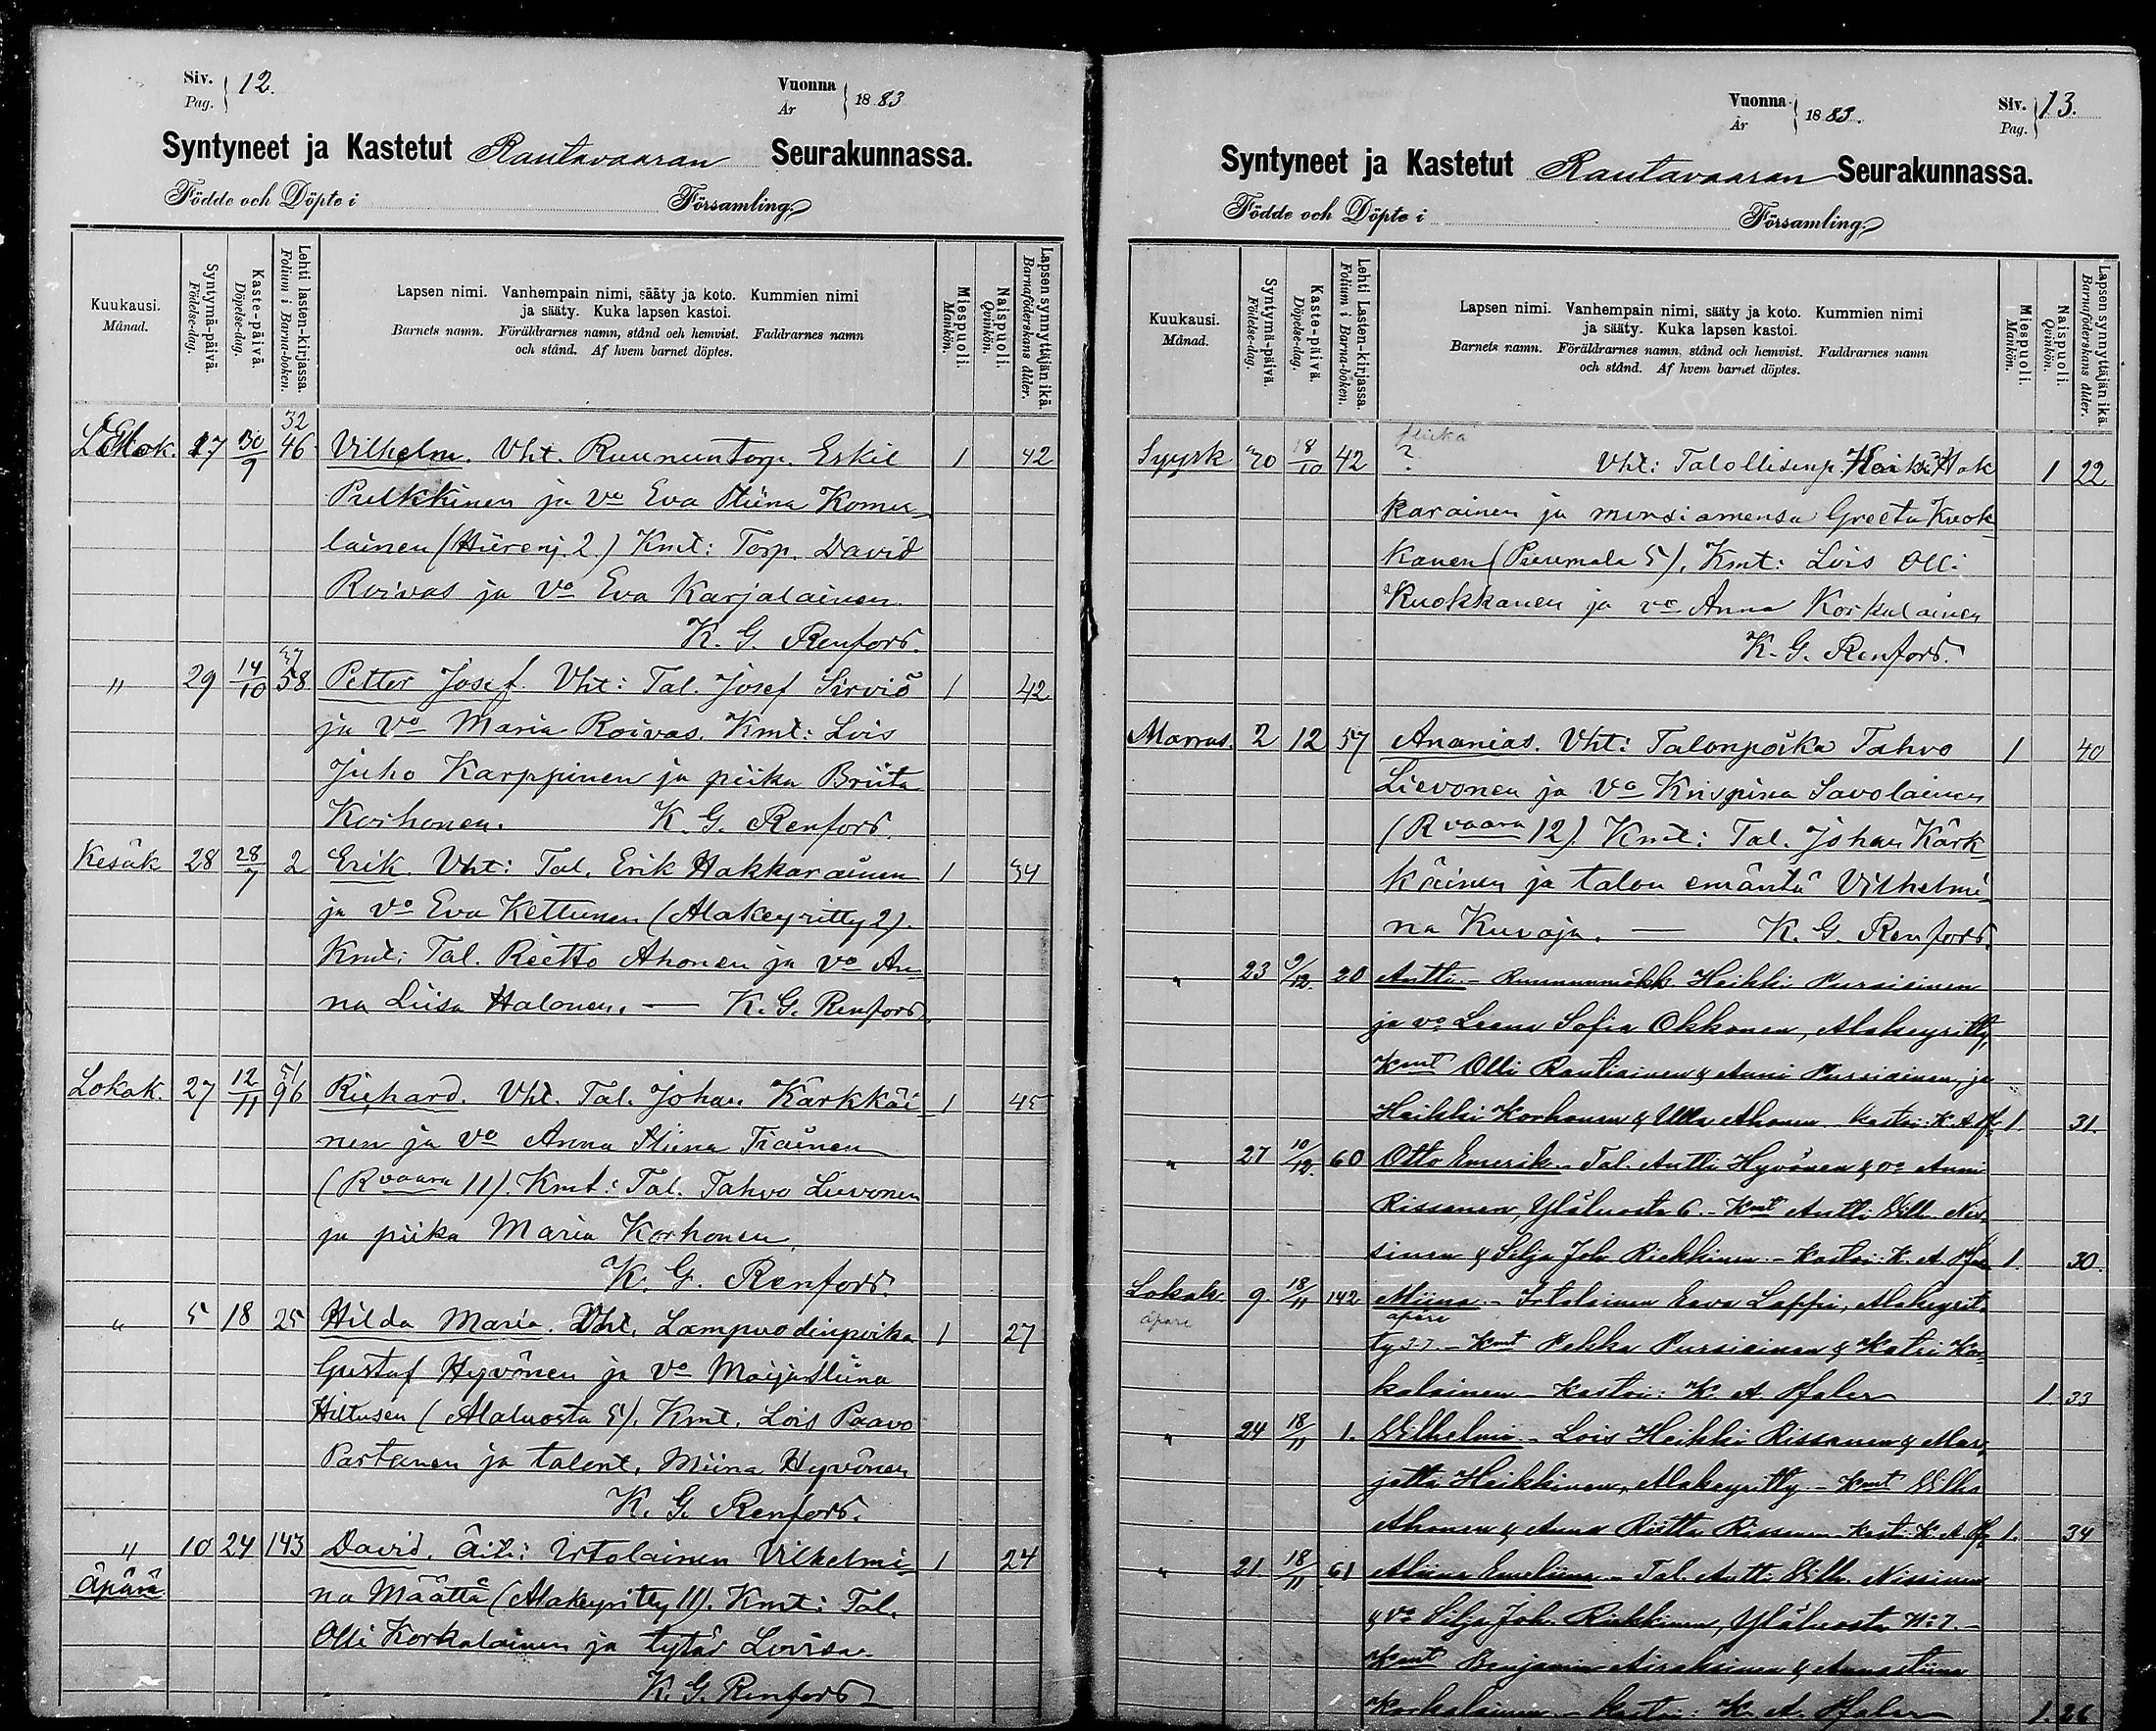 Siv.
Pag. 12.
Vuonna
År 1883
Syntyneet ja Kastetut Rautavaaran Seurakunnassa.
Födde och Döpte i Församling
Kuukausi.
Månad.
Syntymä-päivä.
Födelse-dag.
Kaste-päivä.
Döpelse-dag.
Lehti lasten-kirjassa.
Folium i Barna-boken.
Lapsen nimi. Vanhempain nimi, sääty ja koto. Kummien nimi
ja sääty. Kuka lapsen kastoi.
Barnets namn. Föräldrarnes namn, stånd och hemvist. Faddrarnes namn
och stånd. Af hvem barnet döptes.
Miespuoli.
Mankön.
Naispuoli.
Qvinkön.
Lapsen synnyttäjän ikä.
Barnaföderskans ålder.
32
17 30/9 46 Vilhelm. Vht. Ruununtorp. Eskil 1 42
Pulkkinen ja vo Eva Stiina Komu
lainen (Hiirenj. 2.) Kmt: Torp. David
Roivas ja Vo Eva Karjalainen.
K. G. Renfors.
37
" 29 14/10 58 Petter Josef. Vht: Tal. Josef Sirviö 1 42
ja Vo Maria Roivas. Kmt: Lois
Juho Karppinen ja piika Briita
Korhonen. K. G. Renfors.
Kesäk 28 28/7 2 Erik. Vht: Tal. Erik Hakkarainen 1 34
ja vo Eva Kettunen (Alakeyritty 2).
Kmt: Tal. Reetto Ahonen ja vo An-
na Liisa Halonen. — K. G. Renfors.
51
Lokak. 27 12/11 96 Richard. Vht. Tal. Johan Kärkkäi 1 45
nen ja Vo Anna Stiina Tiainen
(Rvaara 11). Kmt: Tal. Tahvo Lievonen
ja piika Maria Korhonen.
K. G. Renfors.
" 5 18 25 Hilda Maria. Vht. Lampuodinpoika 1 27
Gustaf Hyvönen ja Vo Maija Stiina
Hiltusen (Alaluosta 5). Kmt. Lois Paavo
Partanen ja talont. Miina Hyvönen
K. G. Renfors.
" 10 24 143 David. Äiti: Irtolainen Vilhelmi- 1 24
Äpärä. na Määttä (Alakeyritty 11). Kmt: Tal.
Olli Korkalainen ja tytär Lovisa.
K. G. Renfors
Vuonna
År 1883.
Siv.
Pag. 13.
Syntyneet ja Kastetut Rautavaaran Seurakunnassa.
Födde och Döpte i Församling
Kuukausi.
Månad.
Syntymä-päivä.
Födelse-dag.
Kaste-päivä.
Döpelse-dag.
Lehti Lasten-kirjassa.
Folium i Barna-boken.
Lapsen nimi. Vanhempain nimi, sääty ja koto. Kummien nimi
ja sääty. Kuka lapsen kastoi.
Barnets namn. Föräldrarnes namn, stånd och hemvist. Faddrarnes namn
och stånd. Af hvem barnet döptes.
Miespuoli.
Mankön.
Naispuoli.
Qvinkön.
Lapsen synnyttäjän ikä.
Barnaföderskans ålder.
flicka
Syysk 30 18/10 42 ? Vht: Talollisenp. Heikki Hak 1 22
karainen ja morsiamensa Greeta Kuok
kanen (Puumala 5). Kmt: Lois Olli
Kuokkanen ja vo Anna Korkalainen
K. G. Renfors.
Marras. 2 12 57 Ananias. Vht: Talonpoika Tahvo 1 40
Lievonen ja Vo Krispina Savolainen
(Rvaara 12). Kmt: Tal. Johan Kärk
käinen ja talon emäntä Vilhelmi
na Kuvaja. — K. G. Renfors.
" 23 9/12. 20 Antti. - Ruununmökk. Heikki Pursiainen
ja vo Leena Sofia Okkonen, Alakeyritty,
Kmt Olli Rautiainen & Anni Pursiainen, ja
Heikki Korhonen & Ulla Ahonen. Kastoi: K. A. Pf. 1. 31.
" 27 10/12. 60 Otto Emerik. - Tal. Antti Hyvönen & vo Anni
Rissanen, Yläluosta 6. - Kmt Antti Vilh. Nis-
sinen & Silja Joh. Riekkinen. - Kastoi: K. A. Pfaler 1. 30.
Lokak. 9. 18/11 142 Miina. - Irtolainen Eeva Lappi, Alakeyrit-
äpäre äpäre
ty - Kmt Pekka Pursiainen & Katri Kor-
kalainen - Kastoi: K. A. Pfaler 1. 33
" 24 18/11 1. Vilhelmi. - Lois Heikki Rissanen & Mar-
jetta Heikkinen, Alakeyritty. - Kmt Ville
Ahonen & Anna Riitta Rissanen Kast: K. A. Pf. 1. 34
" 21 18/11 61 Aliina Emeliina. - Tal. Antti Vilh. Nissinen
& Vo Silja Joh. Riekkinen, Yläluosta No 7. -
Kmt Benjamin Airaksinen & Anna Stiina
Korkalainen. - Kastoi: K. A. Pfaler 1. 26